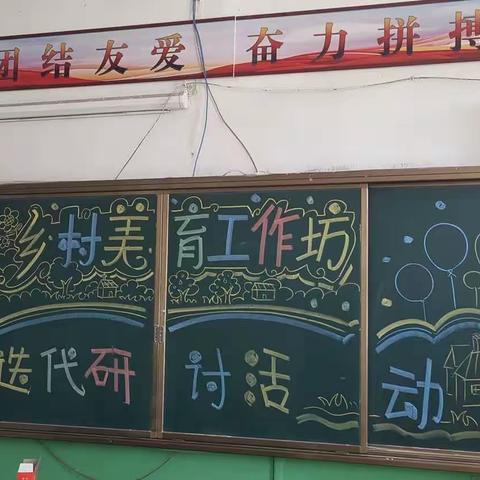 团结友爱 奋力拼搏
乡村美育工作坊
迭代研讨活动